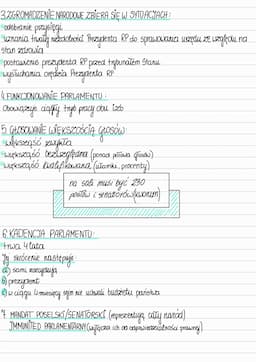 3. ZGROMADZENIE NARODOWE ZBIERA SIĘ W SYTUACJACH:
odebranie przysięgi
uznania trwałej niezdolności Prezydenta RP do sprawowania urzędu ze względu na
stan zdrowia
postawienie prezydenta RP przed trybunałem Stanu
wysłuchania orędzia Prezydenta RP
4. FUNKCJONOWANIE PARLAMENTU:
Obowiązuje ciągły tryb pracy obu izb
5. GŁOSOWANIE WIĘKSZOŚCIĄ GŁOSÓW:
większość zwykła
większość bezwzględna (ponad połowa głosów)
większość kwalifikowana (ułamki, procenty)
na sali musi być 230
posłów i senatorów (kworum)
6. KADENCJA PARLAMENTU:
trwa 4 lata
Jej skrócenie następuje:
a) sami rezygnują
b) prezydent
c) w ciągu 4 miesięcy sejm nie uchwali budżetu państwa
7. MANDAT POSELSKI/SENATORSKI (reprezentują cały naród)
IMMUNITED PARLAMENTARNY (wyłącza ich od odpowiedzialności prawnej)